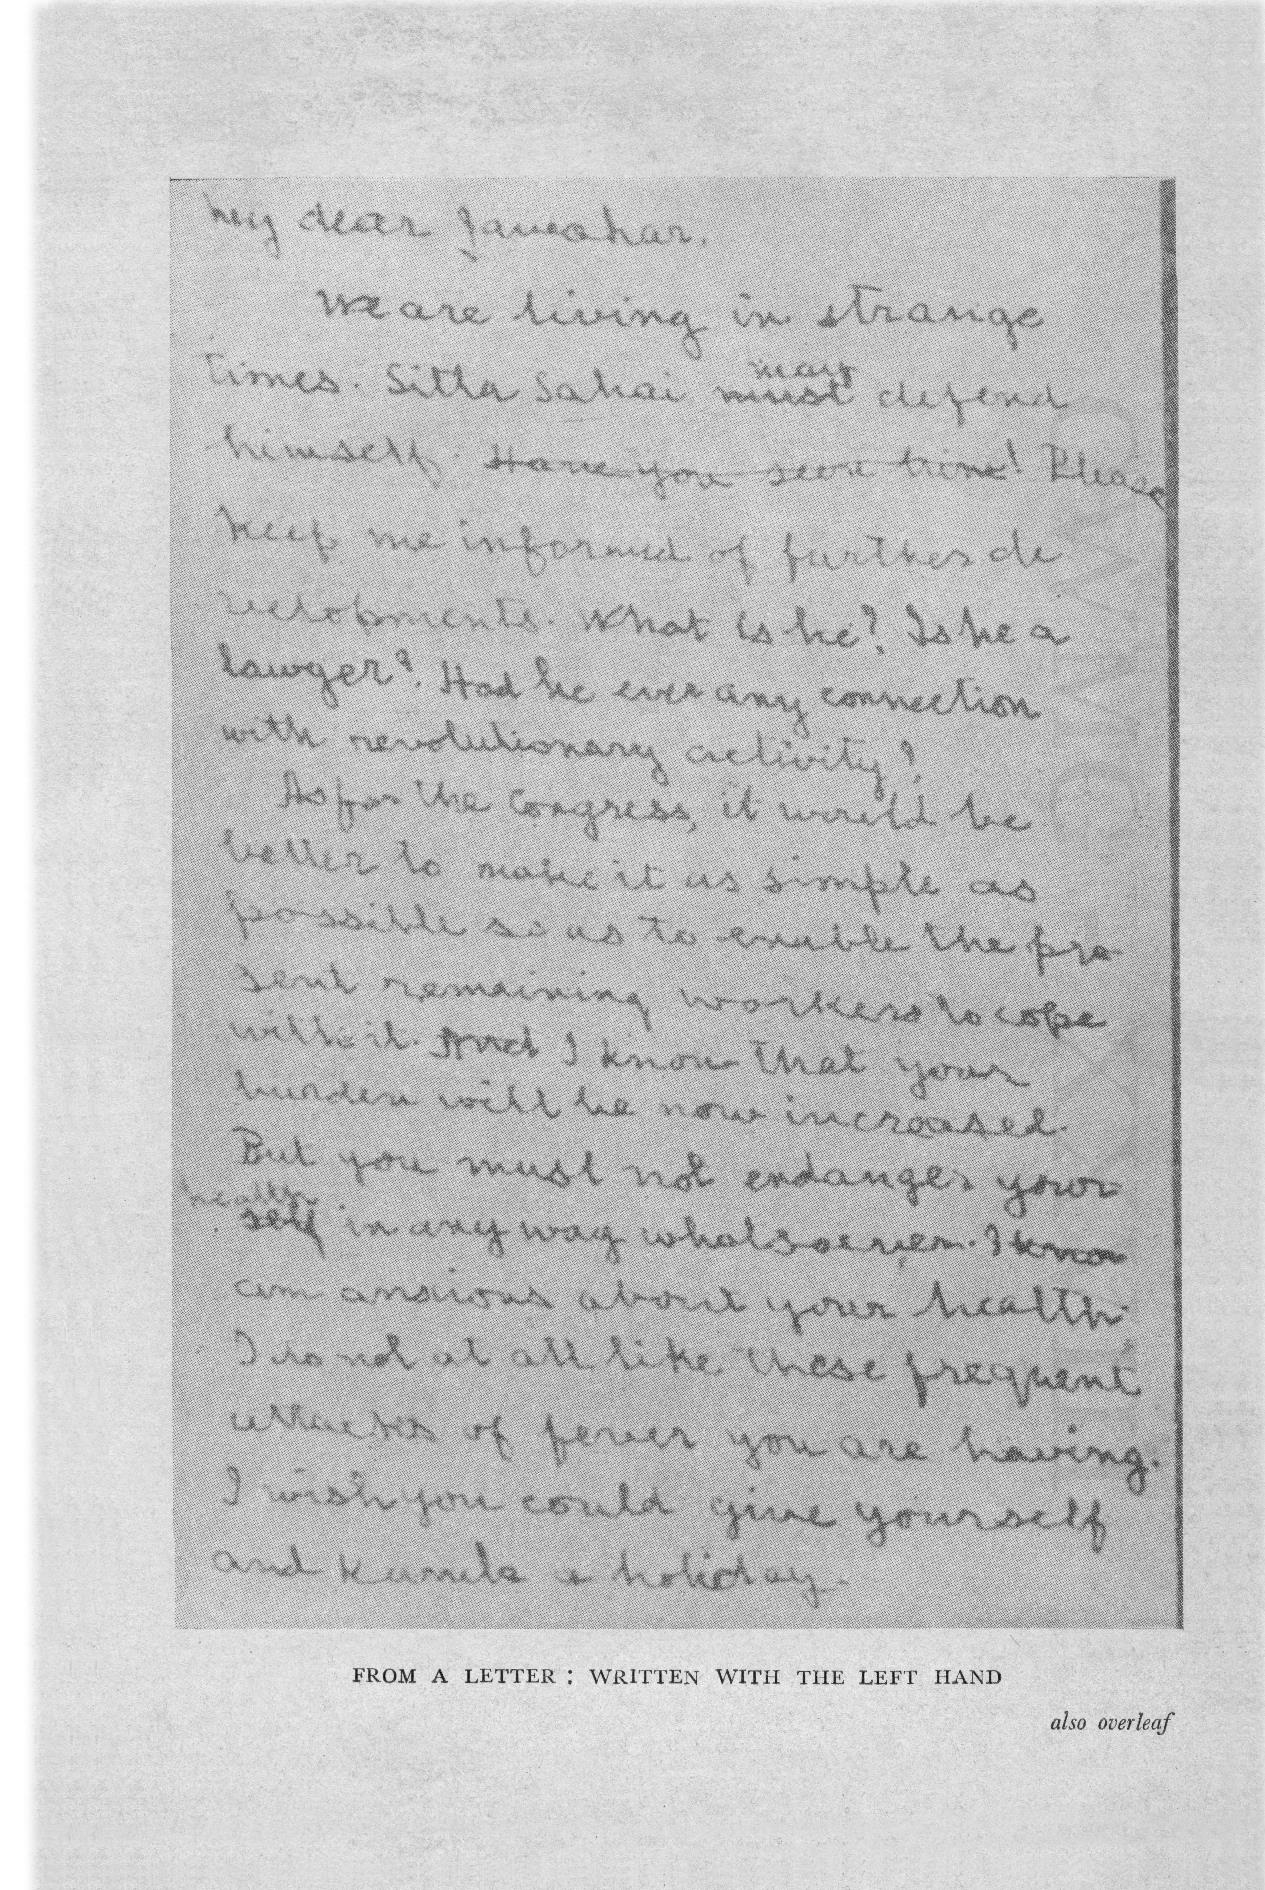 My dear Jawahar,
We are living in strange
times. Sitla Sahai may must defend
himself. Have you seen him? Please
keep me informed of further de
velopments. What is he? Is he a
lawyer? Had he ever any connection
with revolutionary activity?
As for the Congress, it would be
better to make it as simple as
possible so as to enable the pre
sent remaining workers to cope
with it. And I know that your
burden will be now increased.
But you must not endanger your
health self in any way whatsoever. I know
am anxious about your health
I do not at all like these frequent
attacks of fever you are having.
I wish you could give yourself
and Kamla a holiday.
FROM A LETTER : WRITTEN WITH THE LEFT HAND
also overleaf